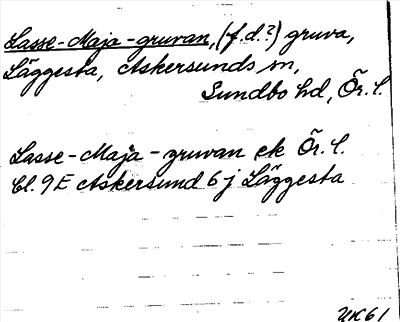 Lasse-Maja-gruvan, (f.d.?) gruva,
Läggesta, Askersunds sn,
Sundbo hd, Ör. l.
Lasse-Maja-gruvan ek Ör. l.
bl. 9E Askersund 6 j Läggesta
UK61